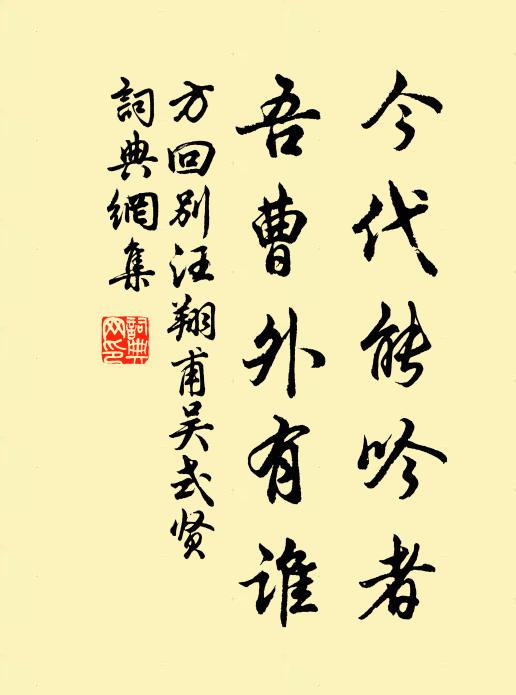 今代能吟者
吾曹外有谁
方回别汪翔甫吴式贤
詞典網集
詞典網印